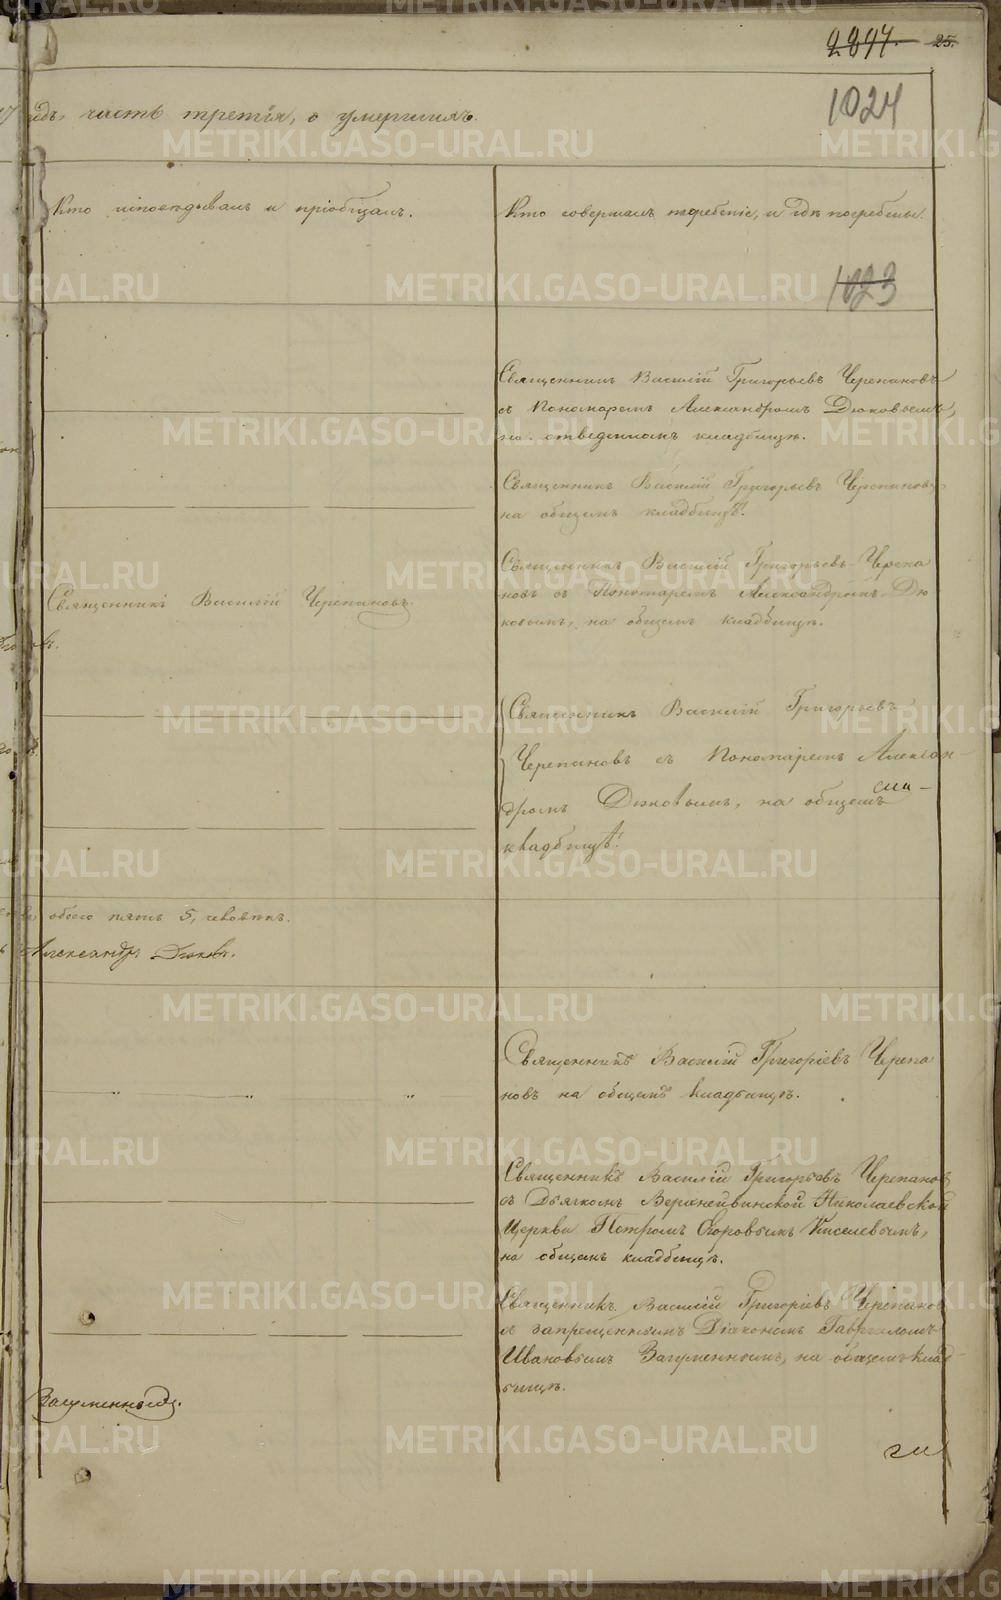 2897. 25.
1024
годъ, часть третія, о умершихъ.
Кто исповѣдывалъ и пріобщалъ.
Кто совершалъ погребеніе, и гдѣ погребены.
1023
Священникъ Василій Григорьевъ Черепановъ
съ Пономаремъ Александромъ Дюковымъ,
на отведенномъ кладбищѣ.
Священникъ Василій Григорьевъ Черепановъ
на общемъ кладбищѣ.
Священникъ Василій Черепановъ.
Священникъ Василій Григорьевъ Черепа
новъ съ Пономаремъ Александромъ Дю
ковымъ, на общемъ кладбищѣ.
Священникъ Василій Григорьевъ
Черепановъ съ Пономаремъ Алексан
дромъ Дюковымъ, на общемъ
кладбищѣ.
обоего пятъ 5, человѣкъ.
Александръ Дюковъ.
Священникъ Василій Григоріевъ Черепа
новъ на общемъ кладбищѣ.
Священникъ Василій Григорьевъ Черепанов
съ Дьячкомъ Верхнейвинской Николаевской
Церкви Петромъ Егоровымъ Киселевымъ,
на общемъ кладбищѣ.
Священникъ Василій Григоріевъ Черепанов
съ запрещеннымъ Діакономъ Гавриломъ
Ивановымъ Загуменнымъ, на общемъ клад
бищѣ.
Загуменный.
METRIKI.GASO-URAL.RU